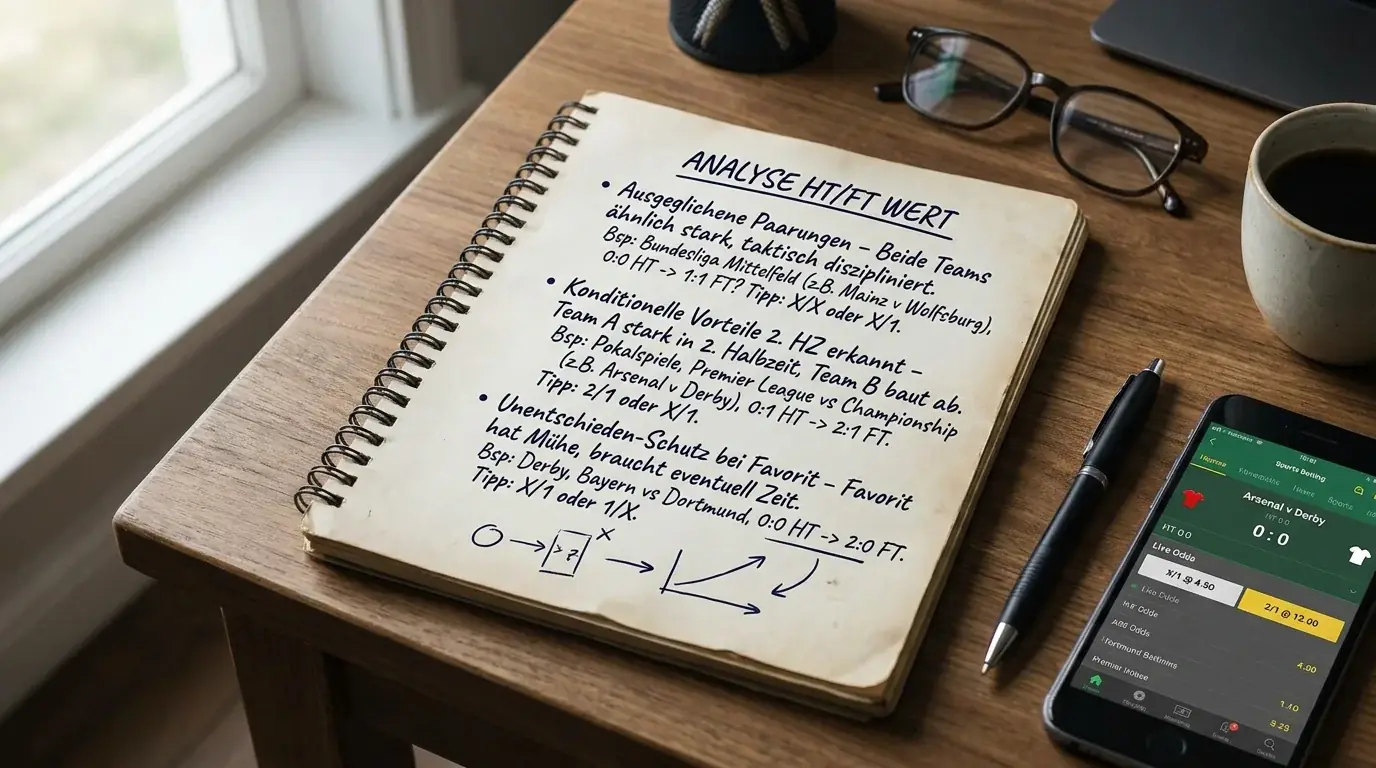 ANALYSE HT/FT WERT
• Ausgeglichene Paarungen – Beide Teams
ähnlich stark, taktisch diszipliniert.
Bsp: Bundesliga Mittelfeld (z.B. Mainz v Wolfsburg),
0:0 HT -> 1:1 FT? Tipp: X/X oder X/1.
• Konditionelle Vorteile 2. HZ erkannt –
Team A stark in 2. Halbzeit, Team B baut ab.
Bsp: Pokalspiele, Premier League vs Championship
(z.B. Arsenal v Derby), 0:1 HT -> 2:1 FT.
Tipp: 2/1 oder X/1.
• Unentschieden-Schutz bei Favorit – Favorit
hat Mühe, braucht eventuell Zeit.
Bsp: Derby, Bayern vs Dortmund, 0:0 HT -> 2:0 FT.
Tipp: X/1 oder 1/X.
> ?
X
Sports Betting
Arsenal v Derby
0 : 0
Live Odds
X/1 @ 4.50
2/1 @ 12.00
4.90